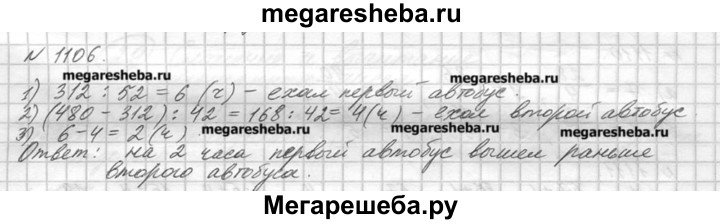 megaresheba.ru
N 1106.
megaresheba.ru megaresheba.ru
1) 312 : 52 = 6 (ч) – ехал первый автобус.
2) (480 – 312) : 42 = 168 : 42 = 4(ч) – ехал второй автобус
3) 6 – 4 = 2 (ч)
megaresheba.ru megaresheba.ru
Ответ: на 2 часа первый автобус вышел раньше
второго автобуса.
Мегарешеба.ру